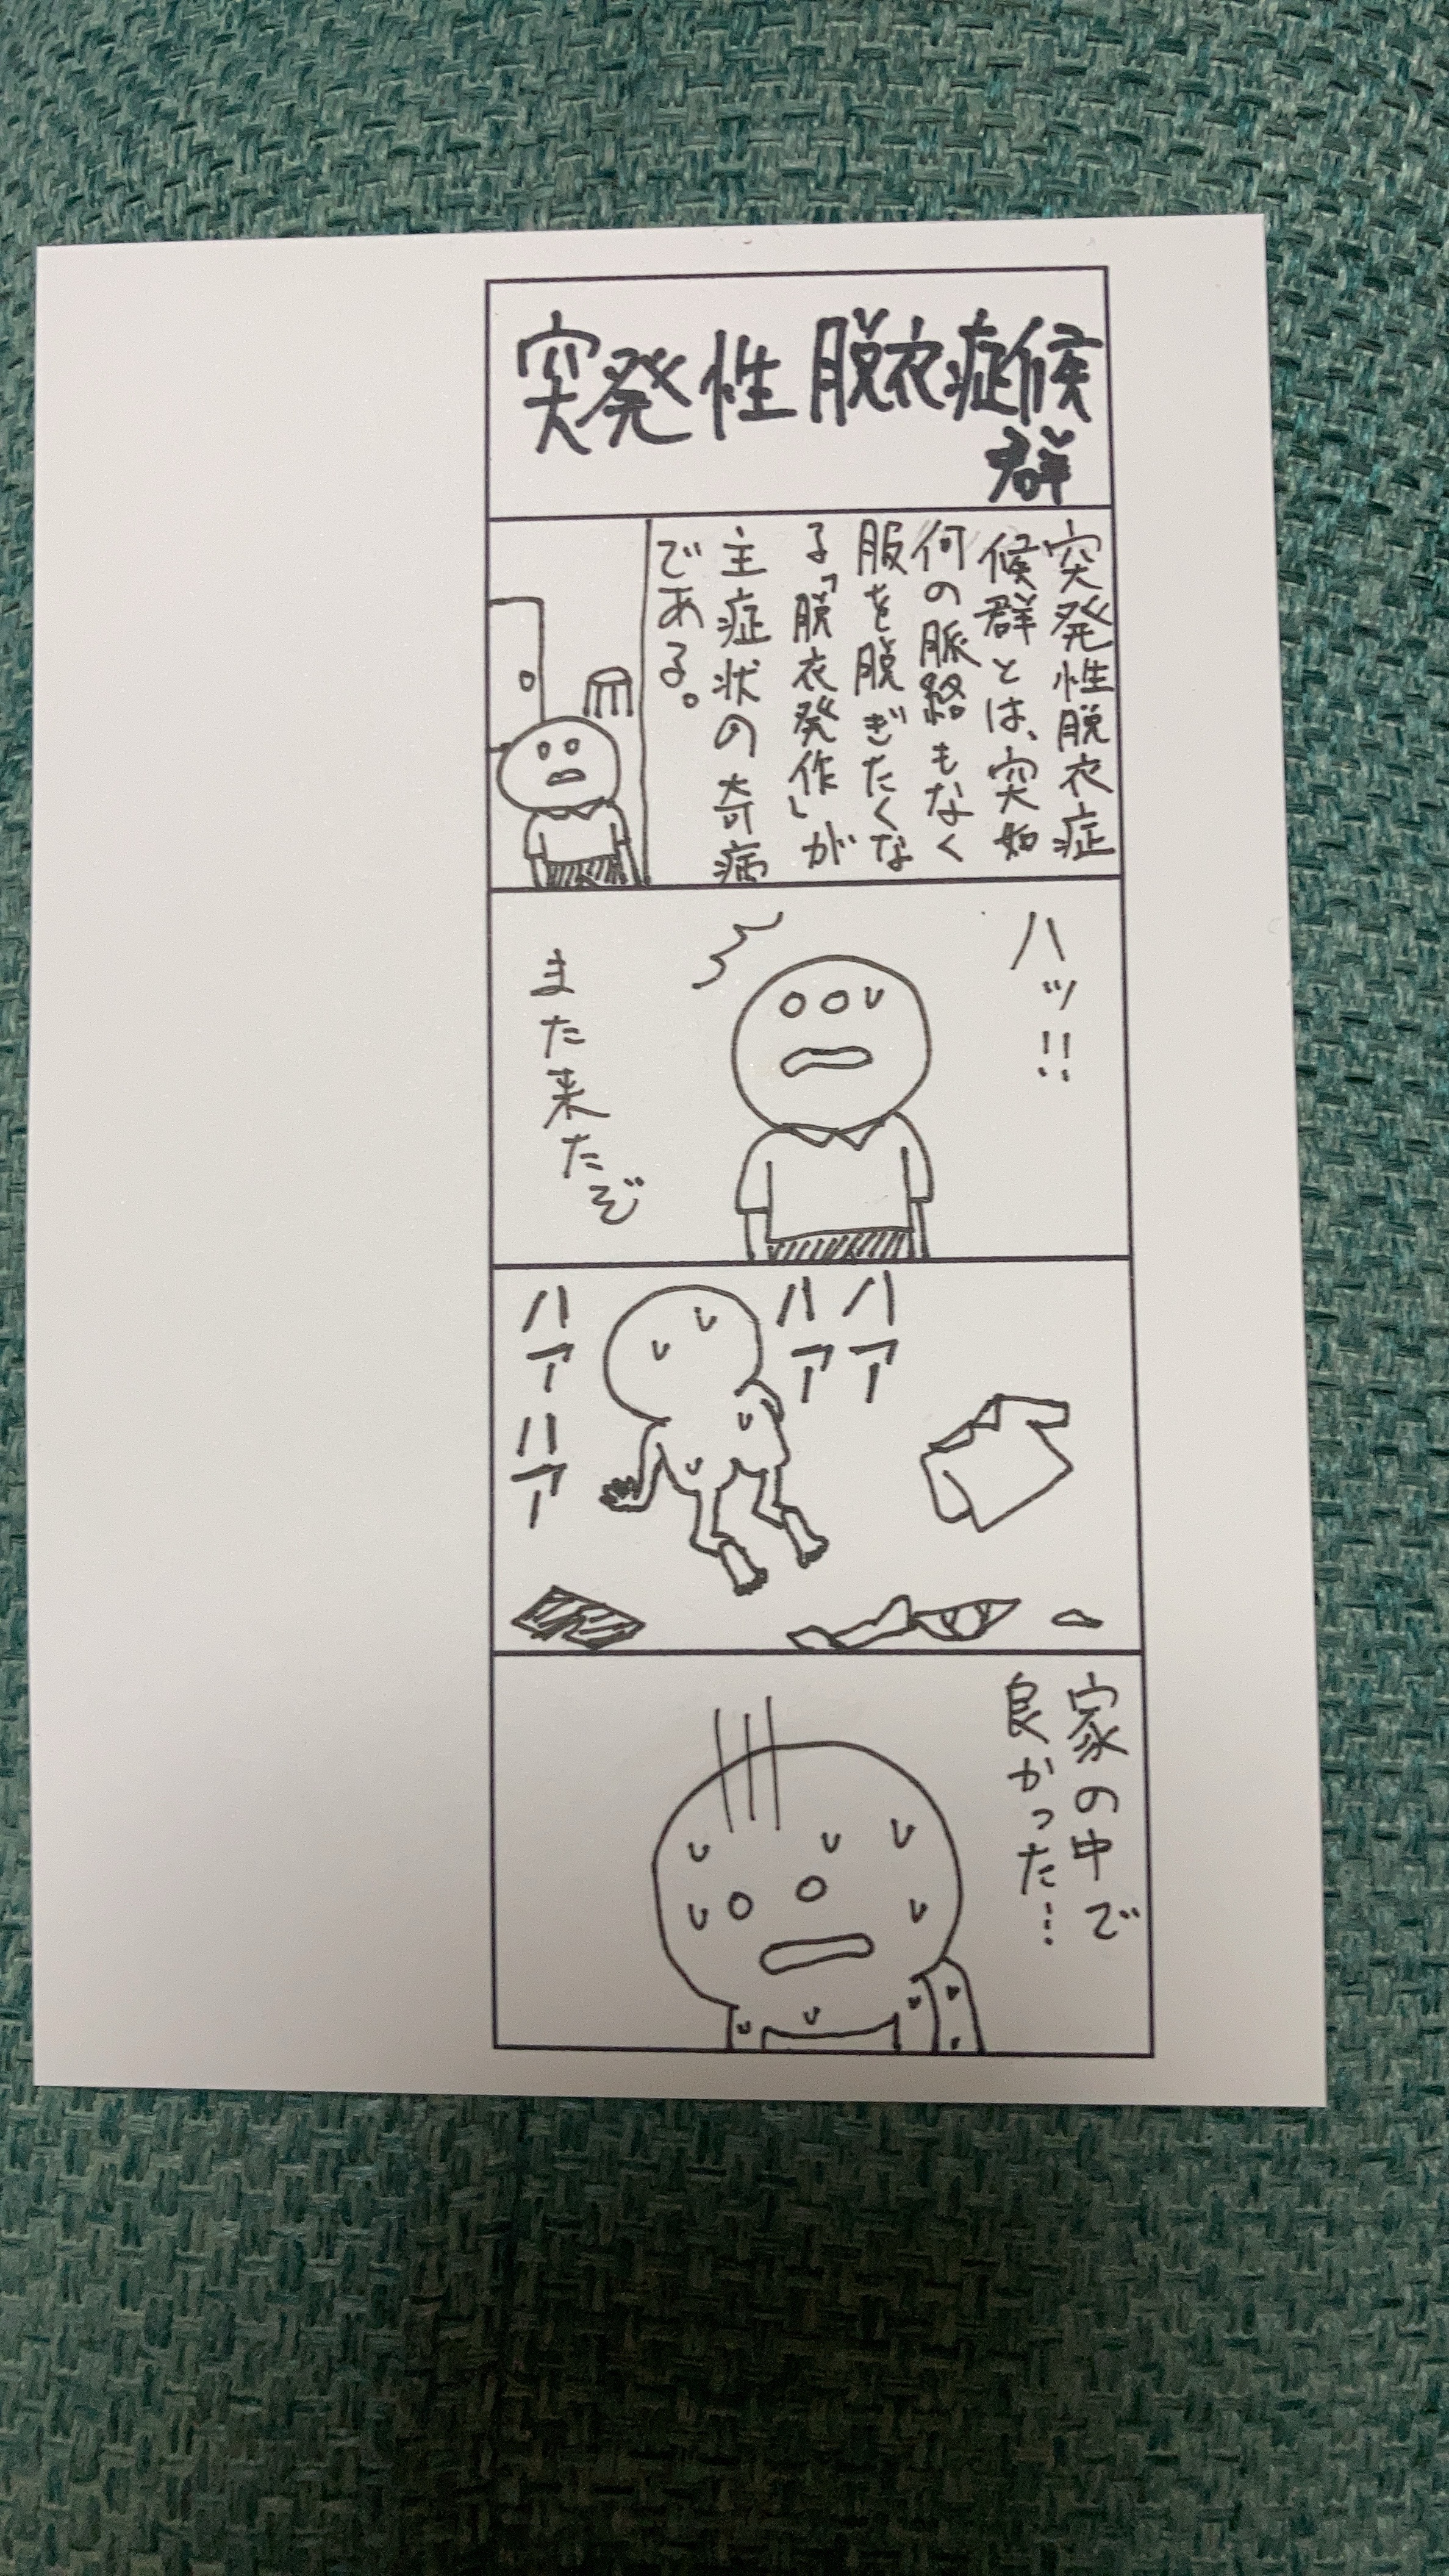 突発性脱衣症候
群
突発性脱衣症
候群とは、突如
何の脈絡もなく
服を脱ぎたくな
る「脱衣発作」が
主症状の奇病
である。
ハッ!!
また来たぞ
ハア
ハア
ハア
ハア
家の中で
良かった…